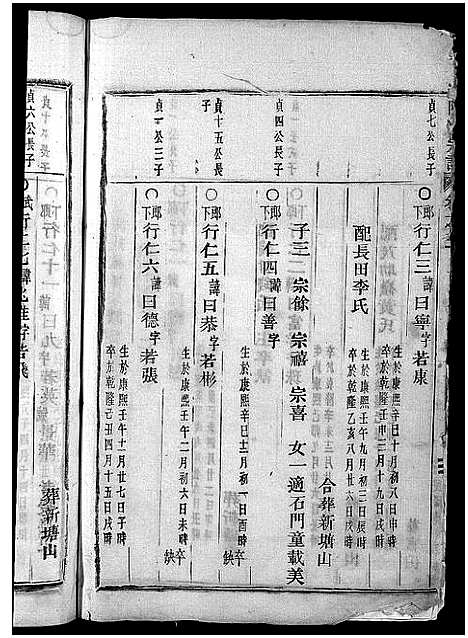 貞七公長子
○郎下行仁三諱曰寧字若康
生於康熙辛巳十月初八日申時
卒於乾隆壬申三月十九日戌時
配長田李氏
生於康熙壬午九月初三日辰時
卒於乾隆乙亥八月廿六日戌時
合葬新塘山
子三 宗餘 宗禧 宗喜 女一適石門童載美
貞四公長子
○郎下行仁四諱曰善字
生於康熙辛巳十二月初一日酉時
缺
貞十五公長子
○郎下行仁五諱曰恭字若彬
生於康熙壬午二月初六日未時卒缺
貞一公三子
○郎下行仁六諱曰德字若張
生於康熙壬午十一月廿七日戌時
卒於乾隆己丑四月十五日戌時
葬新塘山
貞六公長子